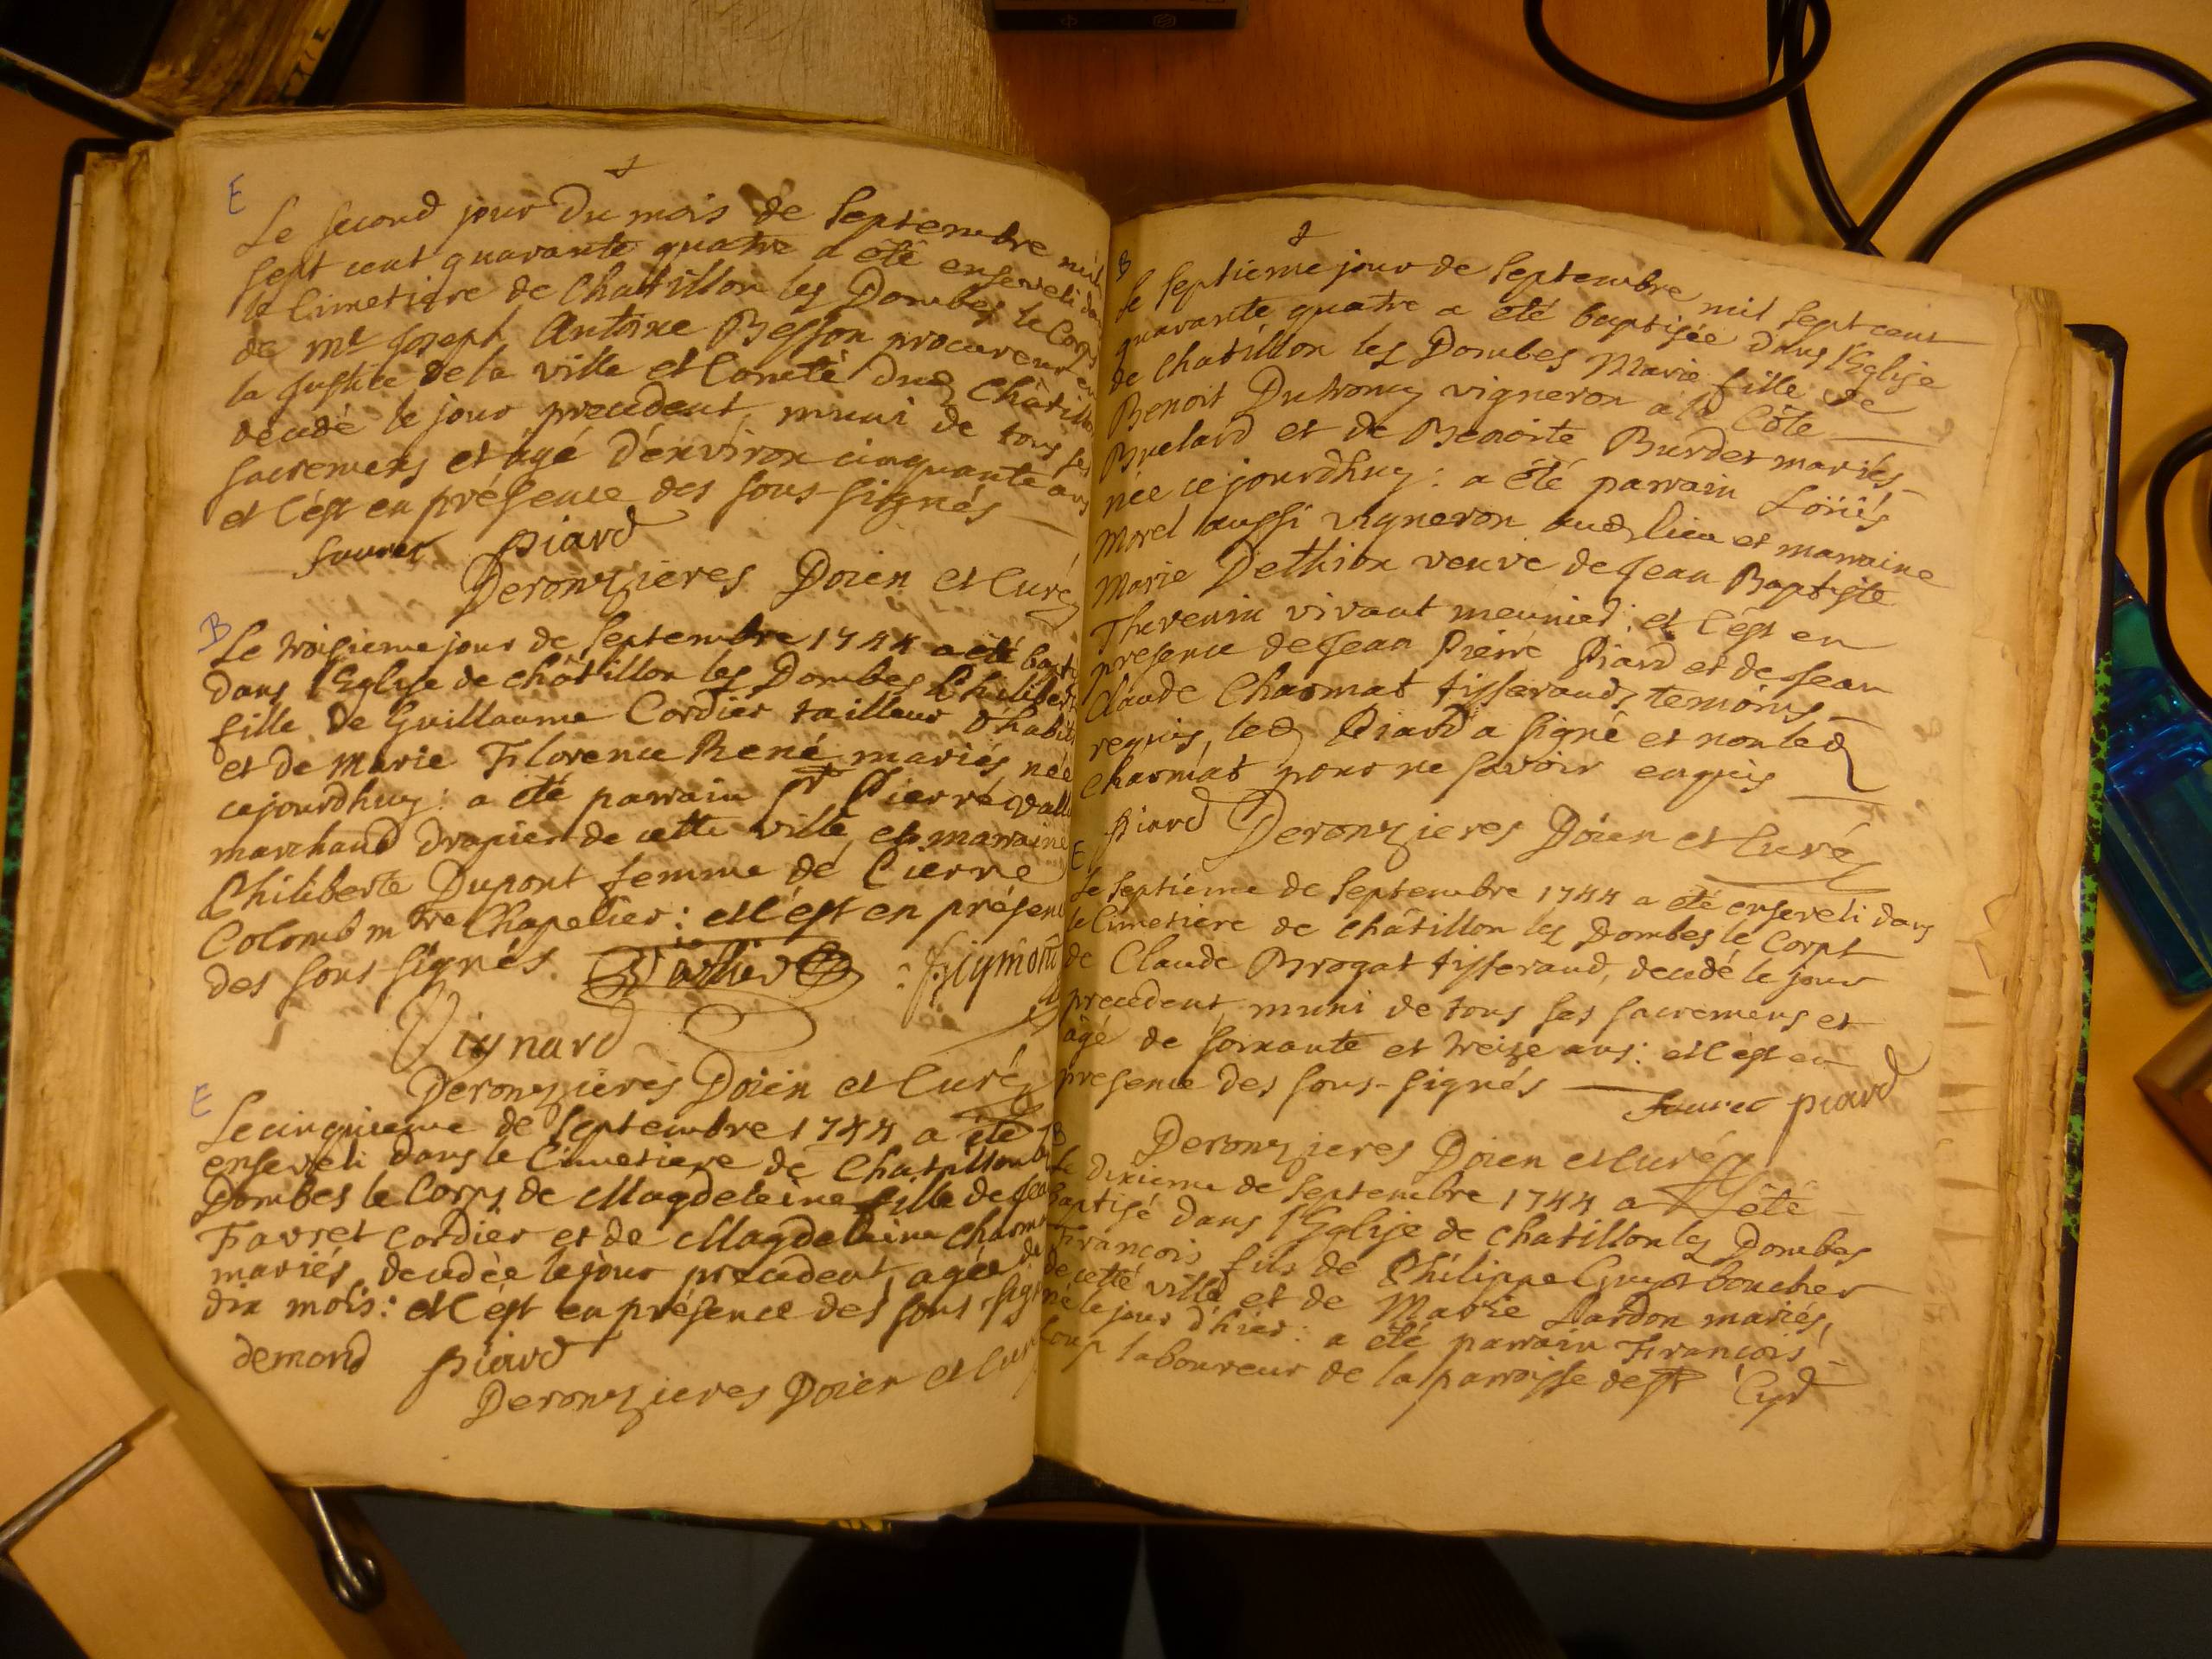 E
Le second jour du mois de septembre mil
sept cent quarante quatre a été enseveli dans
le Cimetiere de Chatillon les Dombes le Corps
de Me Joseph Antoine Besson procureur en
la justice de la ville et Comté dud Châtillon
decedé le jour precedent, muni de tous ses
sacremens et âgé d'environ cinquante ans
et c'est en présence des sous-signés
favret piard
Deronzieres Doien et Curé
B
Le troisieme jour de septembre 1744 a été bapt
dans l'Eglise de châtillon les Dombes Philiberte
fille de Guillaume Cordier tailleur d'habits
et de Marie Florence René mariés, née
cejourdhuy: a été parrain Sr Pierre
marchand drapier de cette ville, et marraine
Philiberte Dupont femme de Pierre
Colomb mtre Chapelier: et c'est en présence
des sous signés.
Vignard
Deronzieres Doien et Curé
E
Le cinquieme de septembre 1744 a été
enseveli dans le Cimetiere de Chatillon les
Dombes le Corps de Magdeleine fille de Jean
Favret cordier et de Magdeleine
mariés, decedée le jour precedent, agée de
dix mois: et c'est en présence des sous-signés
demond piard
Deronzieres Doien et Curé
B
Le septieme jour de septembre mil sept cent
quarante quatre a été baptisée dans l'Eglise
de chatillon les Dombes Marie fille de
Benoit Dutroncy vigneron à la Côte
Brelard et de Benoite Burdet mariés,
née cejourdhuy: a été parrain Loüis
Morel aussi vigneron aud lieu et marraine
Marie Dethion veuve de Jean Baptiste
Thevenin vivant meunier: et c'est en
presence de Jean Pierre Piard et de Jean
Claude Charmat tisserands, temoins
requis, led Piard a signé et non led
charmat pour ne savoir enquis
piard Deronzieres Doien et Curé
E
Le septième de septembre 1744 a été enseveli dans
le Cimetiere de châtillon les Dombes le Corps
de Claude Brogat tisserand, decedé le jour
precedent, muni de tous ses sacremens et
âgé de soixante et treize ans: et c'est en
presence des sous-signés
favret piard
Deronzieres Doien et Curé
B
Le dixieme de septembre 1744 a été
baptisé dans l'Eglise de chatillon les Dombes
François fils de Philippe Guyot boucher
de cette ville et de Marie Lardon mariés,
né le jour d'hier: a été parrain François
Loup laboureur de la parroisse de St Cyr